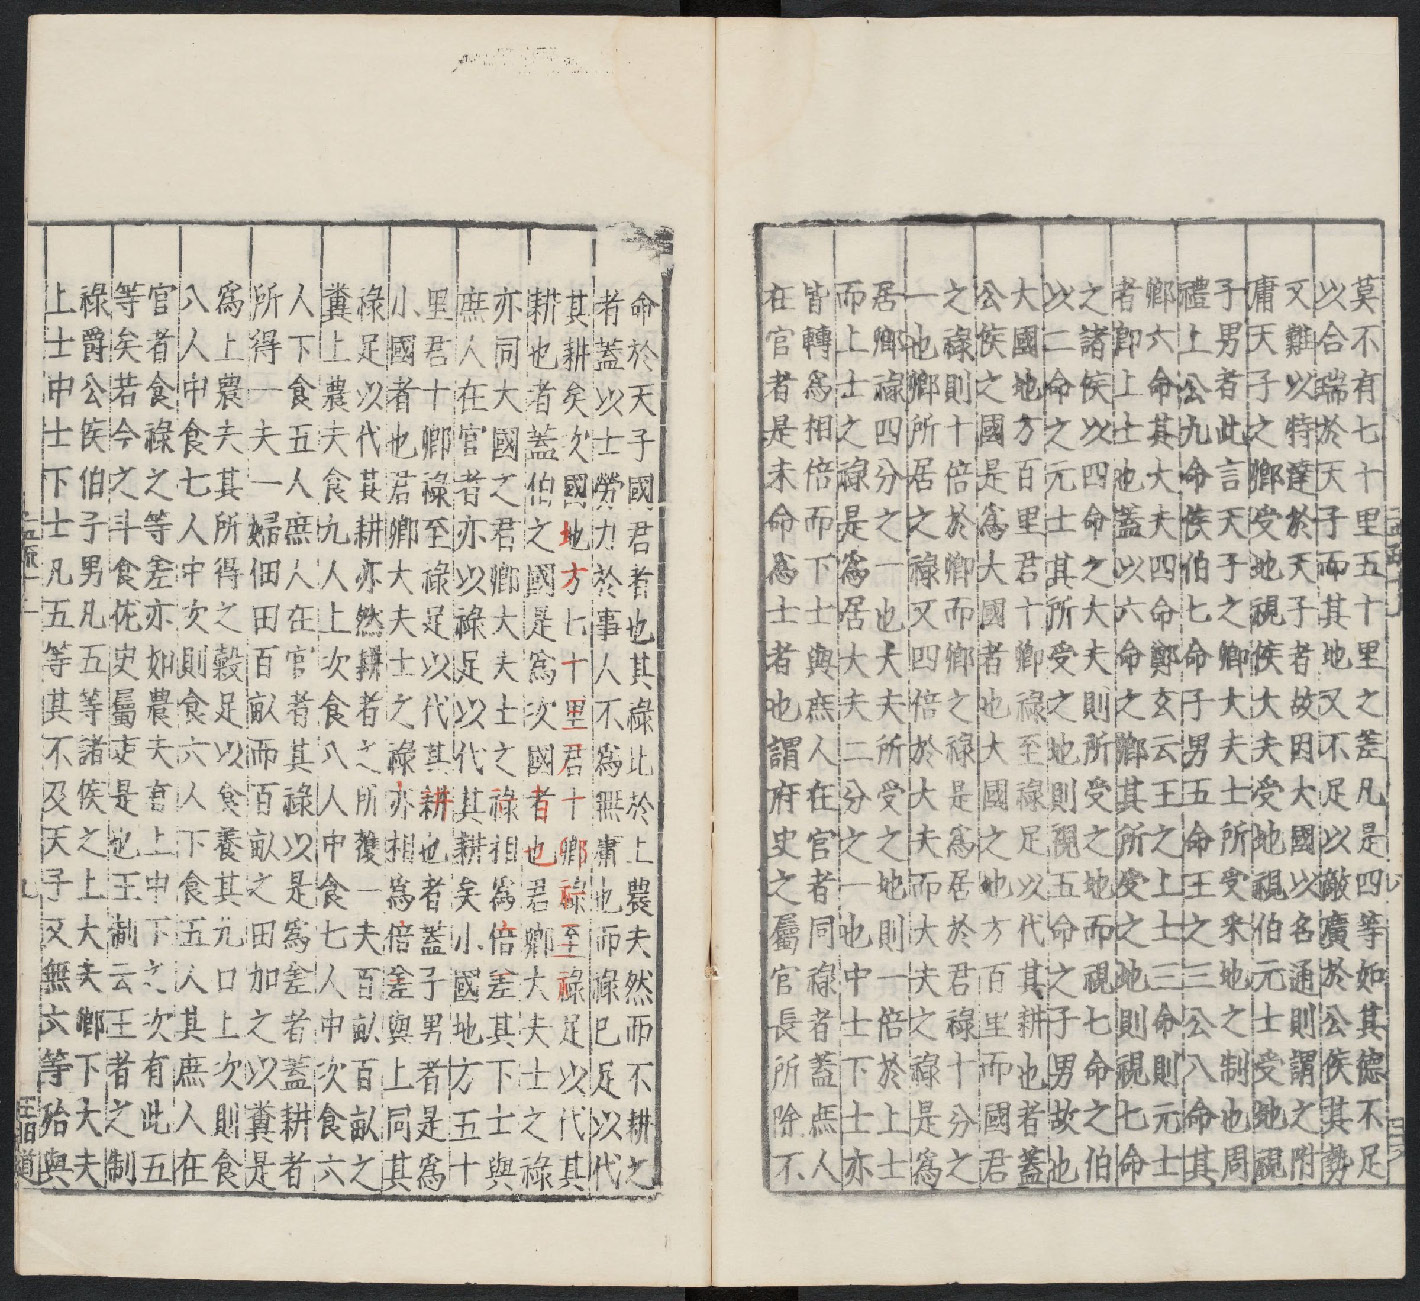 莫不有七十里五十里之差凡是四等如其德不足
以合瑞於天子而其地又不足以敵廣於公侯其勢
又難以特達於天子者故因大國以名通則謂之附
庸天子之卿受地視侯大夫受地視伯元士受地視
子男者此言天子之卿大夫士所受釆地之制也周
禮上公九命侯伯七命子男五命王之三公八命其
卿六命其大夫四命鄭玄云王之上士三命則元士
者即上士也蓋以六命之卿其所受之地則視七命
之諸侯以四命之大夫則所受之地而視七命之伯
以二命之元士其所受之地則視五命之子男故也
大國地方百里君十卿祿至祿足以代其耕也者蓋
公侯之國是為大國者也大國之地方百里而國君
之祿則十倍於卿而卿之祿是為居於君祿十分之
一也卿所居之祿又四倍於大夫而大夫之祿是為
居卿祿四分之一也大夫所受之地則一倍於上士
而上士之祿是為居大夫二分之一也中士下士亦
皆轉為相倍而下士與庶人在官者同祿者蓋庶人
在官者是未命為士者也謂府史之屬官長所除不
命於天子國君者也其祿比於上農夫然而不耕之
者蓋以士勞力於事人不為無庸也而祿已足以代
其耕矣次國地方七十里君十卿祿至祿足以代其
耕也者蓋伯之國是為次國者也君卿大夫士之祿
亦同大國之君卿大夫士之祿相為倍差其下士與
庶人在官者亦以祿足以代其耕矣小國地方五十
里君十卿祿至祿足以代其耕也者蓋子男者是為
小國者也君卿大夫士之祿亦相為倍差與上同其
祿足以代其耕亦然耕者之所穫一夫百畝百畝之
糞上農夫食九人上次食八人中食七人中次食六
人下食五人庶人在官者其祿以是為差者蓋耕者
所得一夫一婦佃田百畝而百畝之田加之以糞是
為上農夫其所得之穀足以食養其九口上次則食
八人中食七人中次則食六人下食五人其庶人在
官者食祿之等差亦如農夫有上中下之次有此五
等矣若今之斗食佐史屬吏是也王制云王者之制
祿爵公侯伯子男凡五等諸侯之上大夫卿下大夫
上士中士下士凡五等其不及天子又無六等殆與